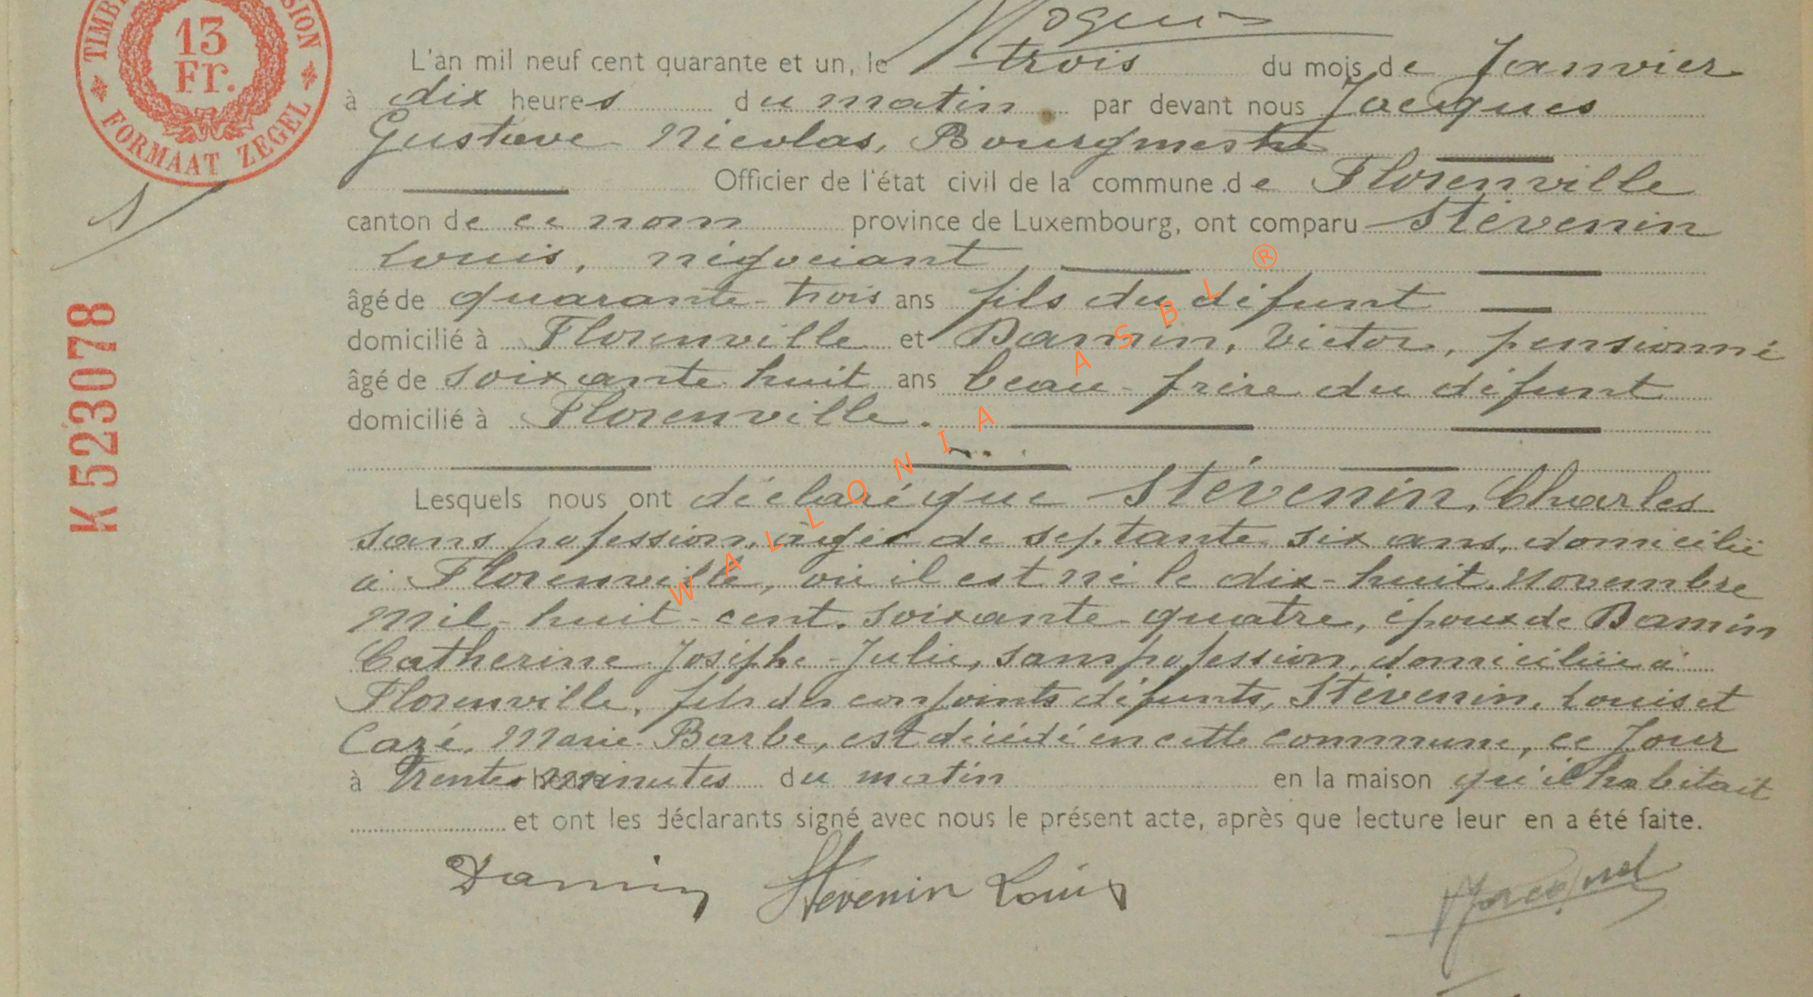 TIMBRE
SION
13
Fr.
FORMAAT ZEGEL
L'an mil neuf cent quarante et un, le trois du mois de Janvier
à dix heures du matin par devant nous Jacques
Gustave Nicolas, Bourgmestre
Officier de l'état civil de la commune de Florenville
1
canton de ce nom province de Luxembourg, ont comparu Stévenin
Louis, négociant
âgé de quarante-trois ans fils du défunt
domicilié à Florenville et Damin, Victor, pensionné
âgé de soixante huit ans beau-frère du défunt
domicilié à Florenville.
K 523078
WALLONIA ASBL ®
Lesquels nous ont déclaré que Stévenin, Charles
sans profession, âgé de septante six ans, domicilié
à Florenville, où il est né le dix-huit Novembre
mil-huit-cent-soixante-quatre, époux de Damin
Catherine-Josèphe-Julie, sans profession, domiciliée à
Florenville, fils des conjoints défunts, Stévenin, Louis et
Cazé, Marie-Barbe, est décédé en cette commune, ce Jour
à trente minutes du matin en la maison qu'il habitait
et ont les déclarants signé avec nous le présent acte, après que lecture leur en a été faite.
Damin Stévenin Louis